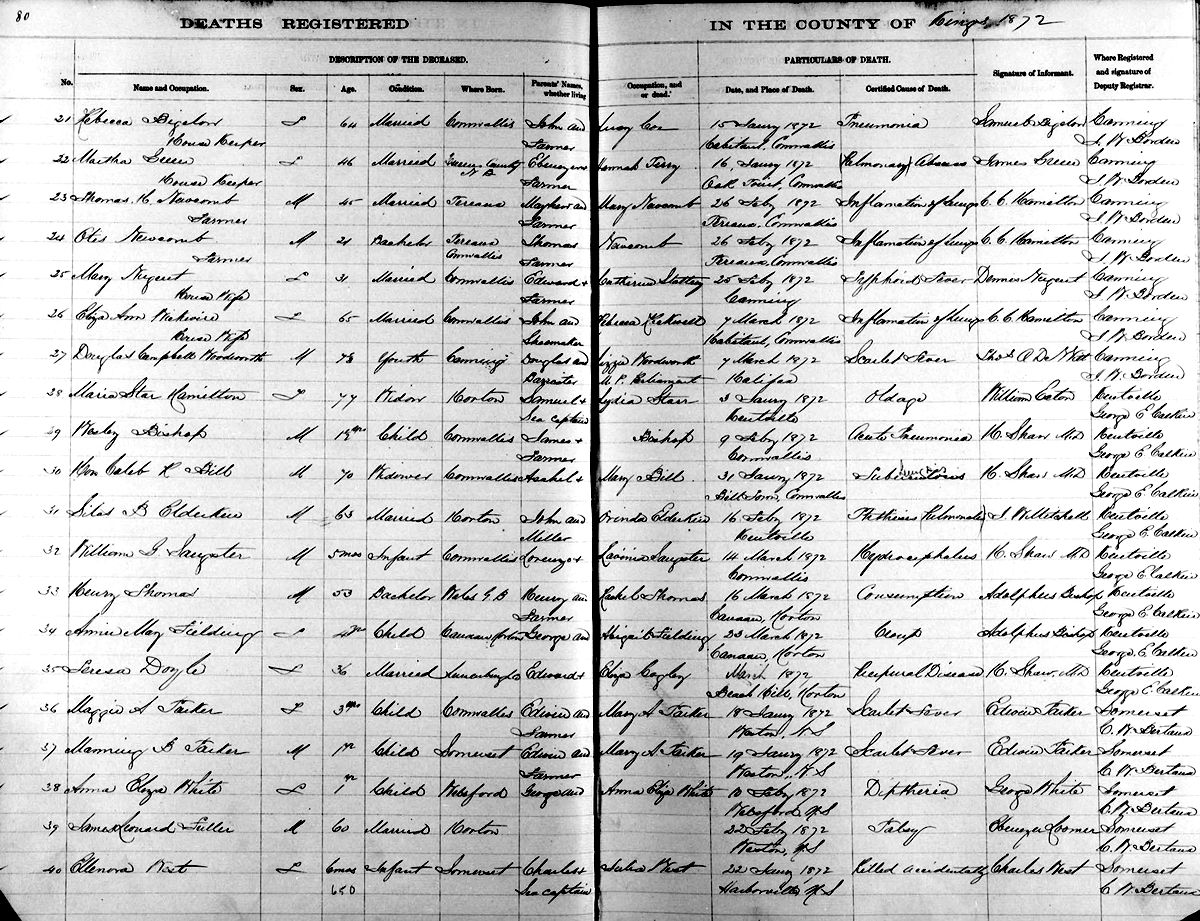 80
DEATHS REGISTERED IN THE COUNTY OF Kings 1872
DESCRIPTION OF THE DECEASED. PARTICULARS OF DEATH.
No. Name and Occupation. Sex. Age. Condition. Where Born. Parents' Names, whether living Occupation, and or dead. Date, and Place of Death. Certified Cause of Death. Signature of Informant. Where Registered and signature of Deputy Registrar.
21 Rebecca Bigelow F 64 Married Cornwallis John and Lucy Cox 15 Jany 1872 Pneumonia Samuel Bigelow Canning
House Keeper Farmer Habitant, Cornwallis J. W. Borden
22 Martha Green F 46 Married Queens County Ebenezer and Hannah Terry 16 Jany 1872 Pulmonary Abscess James Green Canning
House Keeper N B Farmer Oak Point, Cornwallis J. W. Borden
23 Thomas H. Newcomb M 45 Married Pereaux Mayhew and Mary Newcomb 26 Feby 1872 Inflamation of Lungs C. C. Hamilton Canning
Farmer Farmer Pereaux, Cornwallis J. W. Borden
24 Otis Newcomb M 21 Bachelor Pereaux Thomas Newcomb 26 Feby 1872 Inflamation of Lungs C. C. Hamilton Canning
Farmer Cornwallis Farmer Pereaux, Cornwallis J. W. Borden
25 Mary Nugent F 31 Married Cornwallis Edward + Catherine Slattery 25 Feby 1872 Typhoid Fever Dennis Nugent Canning
House Wife Farmer Canning J. W. Borden
26 Eliza Ann F 65 Married Cornwallis John and Rebecca 7 March 1872 Inflamation of Lungs C. C. Hamilton Canning
House Wife Shoemaker Habitant, Cornwallis J. W. Borden
27 Douglas Campbell Woodworth M Youth Canning Douglas and Lizzie Woodworth 7 March 1872 Scarlet Fever De Witt Canning
Barrister M. P. Parliament Halifax J. W. Borden
28 Maria Star Hamilton F 77 Widow Horton Samuel + Lydia Starr 3 Jany 1872 Old age William Eaton Kentville
Sea Captain Kentville George E Calkin
29 Wesley Bishop M Child Cornwallis James + Bishop 9 Feby 1872 Acute Pneumonia H. Shaw MD Kentville
Farmer Cornwallis George E Calkin
30 Hon Caleb R Bill M 70 Widower Cornwallis Asahel + Mary Bill 31 Jany 1872 H. Shaw MD Kentville
Bill Town, Cornwallis George E Calkin
31 Silas B Elderkin M 63 Married Horton John and Orinda Elderkin 16 Feby 1872 Phthisis Pulmonalis J. W. Mitchell Kentville
Miller Kentville George E. Calkin
32 William G Sangster M 5 mos Infant Cornwallis Lorenzo + Lavinia Sangster 14 March 1872 Hydrocephalus H. Shaw MD Kentville
Cornwallis George E Calkin
33 Henry Thomas M 53 Bachelor Wales G B Henry and Rachel Thomas 16 March 1872 Consumption Adolphus Bishop Kentville
Farmer Canaan, Horton George E Calkin
34 Annie May Fielding F Child Canaan Horton George and Abigail Fielding 23 March 1872 Croup Adolphus Bishop Kentville
Canaan, Horton George E. Calkin
35 Teresa Doyle F 36 Married Lunenburg Co Edward + Eliza March 1872 Puerperal Disease H. Shaw, MD Kentville
Beach Hill, Horton George E Calkin
36 Maggie A Parker F 3 yrs Child Cornwallis Edwin and Mary A Parker 18 Jany 1872 Scarlet Fever Edwin Parker Somerset
Farmer Weston, N S C. W. Bertaux
37 Manning B Parker M 1 yr Child Somerset Edwin and Mary A Parker 19 Jany 1872 Scarlet Fever Edwin Parker Somerset
Farmer Weston, N S C. W. Bertaux
38 Anna Eliza White F 1 yr Child Welsford George and Anna Eliza White 10 Feby 1872 Diptheria George White Somerset
Welsford N S C. W. Bertaux
39 James Leonard Fuller M 60 Married Horton 22 Feby 1872 Palsy Ebenezer Somerset
Weston, N S C. W. Bertaux
40 Ellenora West F 6 mos Infant Somerset Charles + Julia West 22 Jany 1872 Killed accidentally Charles West Somerset
650 Sea Captain Harborville N S C W Bertaux